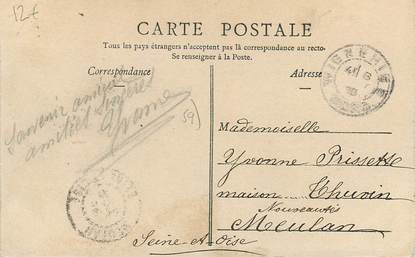 12€
CARTE POSTALE
Tous les pays étrangers n'acceptent pas la correspondance au recto.
Se renseigner à la Poste.
Correspondance
Adresse
WIGNEHIES
Souvenir amical
amitiés sincères
Yvonne
59)
Mademoiselle
Yvonne Prissette
maison Thuvin
Nouveautés
Meulan
Seine-et-Oise